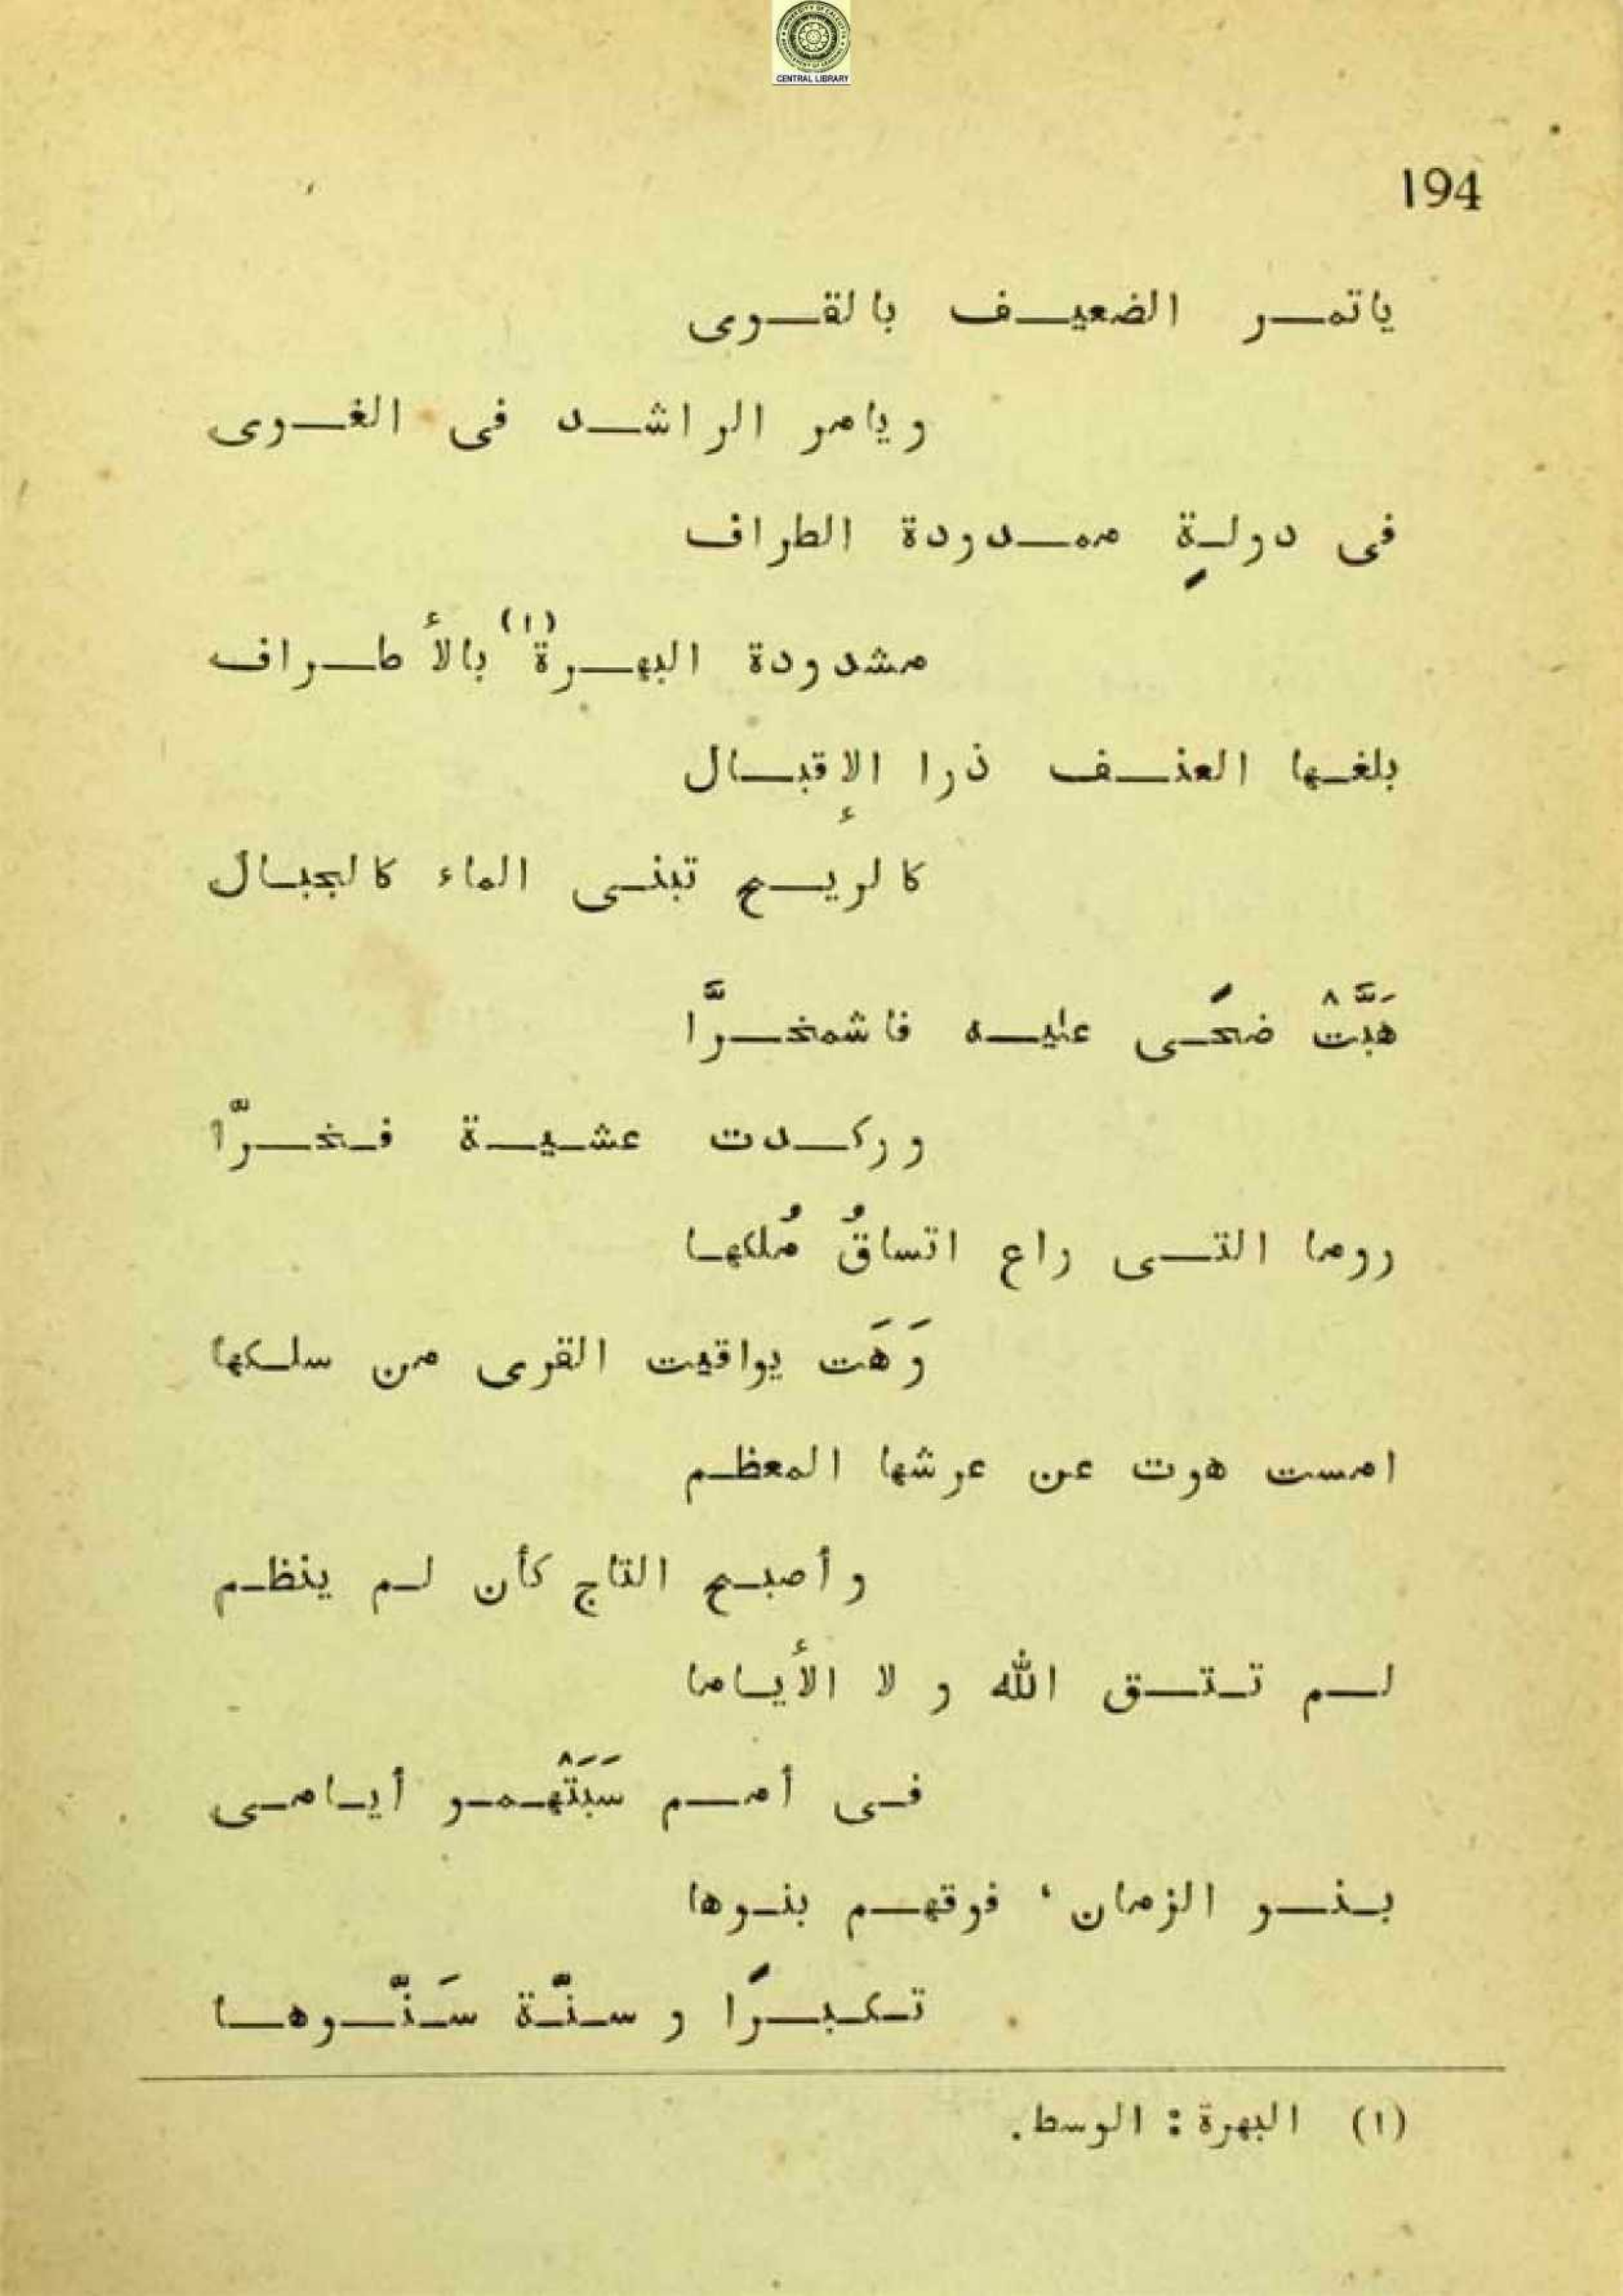 CENTRAL LIBRARY
194
ياتمر الضعيف بالقوى
ويامر الراشد فى الغوى
فى دولةٍ ممدودة الطراف
مشدودة البهرة (١) بالأطراف
بلغها العنف ذرا الإقبال
كالريح تبنى الماء كالجبال
هَبَّتْ ضحًى عليه فاشمخرَّا
وركدت عشية فخرّا
روما التى راع اتساقُ مُلكها
وَهَت يواقيت القرى من سلكها
امست هوت عن عرشها المعظم
وأصبح التاج كأن لم ينظم
لم تتق الله و لا الأياما
فى أمم سَبَتْهمو أيامى
بنو الزمان، فوقهم بنوها
تكبرًا و سنّة سَنّوها
(١) البهرة : الوسط.